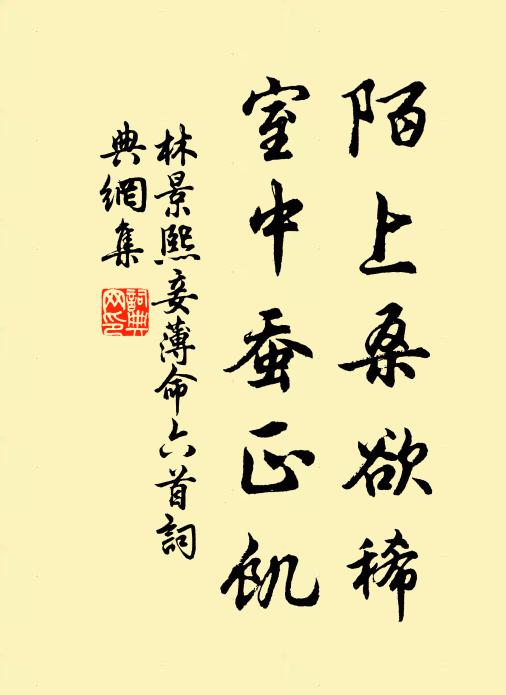 陌上桑欲稀
室中蚕正飢
林景熙妾薄命六首詞
典網集
詞典
网印